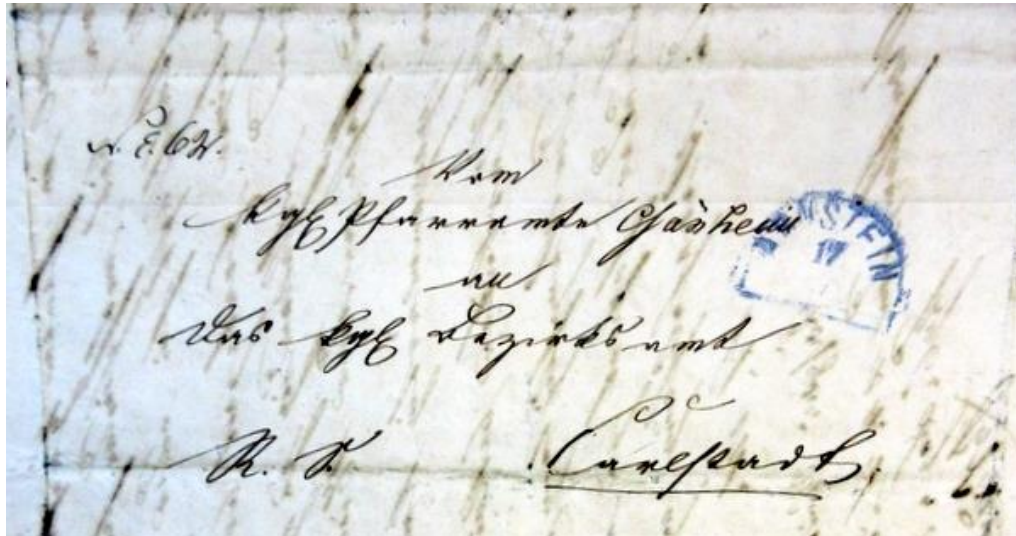 N. E. 62.
Vom
kgl. Pfarramte Gänheim
an
Das kgl. Bezirksamt
R. S. Carlstadt.
NSTEIN
17